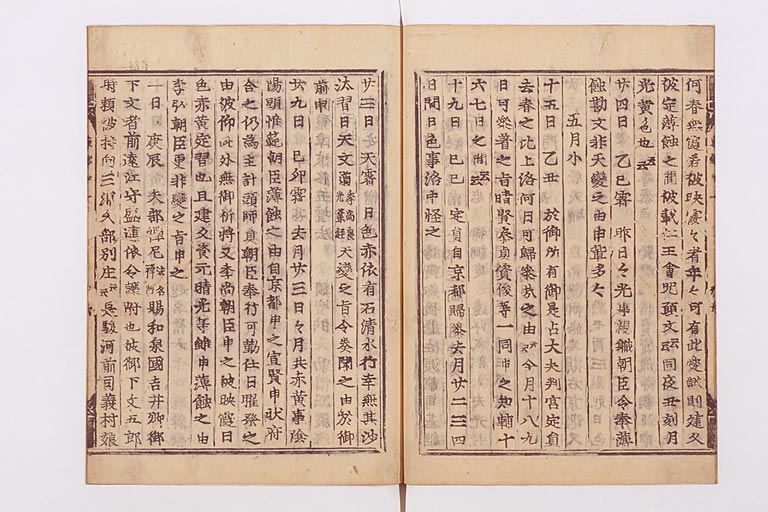 何春無霞若被映霞々者年々可有此變歟則建久
彼定薄蝕之間被載仁王會呪願文云云同夜丑刻月
光黄色也云云
廿四日 乙巳霽 昨日々光事親職朝臣令奉薄
蝕勘文非天變之由申輩多々
五月小
十五日 乙丑 於御所有御占占大夫判官定員
去春之比上洛何日可歸參哉之由云云今月十八九
日可參著之旨晴賢泰貞資俊等一同申之知輔十
六七日之間云云
十九日 己巳 定員自京都歸參去月廿二三四
日間日色事洛中怪之
廿三日 天霽 日色赤依有石清水行幸無其沙
汰翌日天文道 天變之旨令奏聞之由於御
前申
廿九日 己卯霽 去月廿三日々月共赤黄事陰
陽頭惟範朝臣薄蝕之由自京都申之宣賢申状府
合之仍為主計頭師員朝臣奉行可勤仕日曜祭之
由被仰此外無御祈將又季尚朝臣申之被映霞日
色赤黄定習也且建久貞元晴光等雖申薄蝕之由
季弘朝臣更非變之旨申之
一日 庚辰 矢部禅尼 賜和泉國吉井郷御
下文者前遠江守盛連依令讓附也彼御下文五郎
時頼被持向三浦矢部別庄云云是駿河前司義村娘